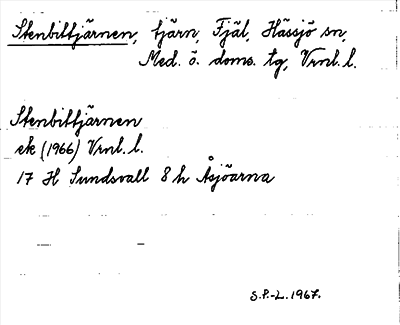 Stenbittjärnen, tjärn, Fjäl, Hässjö sn,
Med. ö. doms. tg, Vrnl. l.
Stenbittjärnen
ek (1966) Vrnl. l.
17 H Sundsvall 8 h Åsjöarna
S.P.-L. 1967.